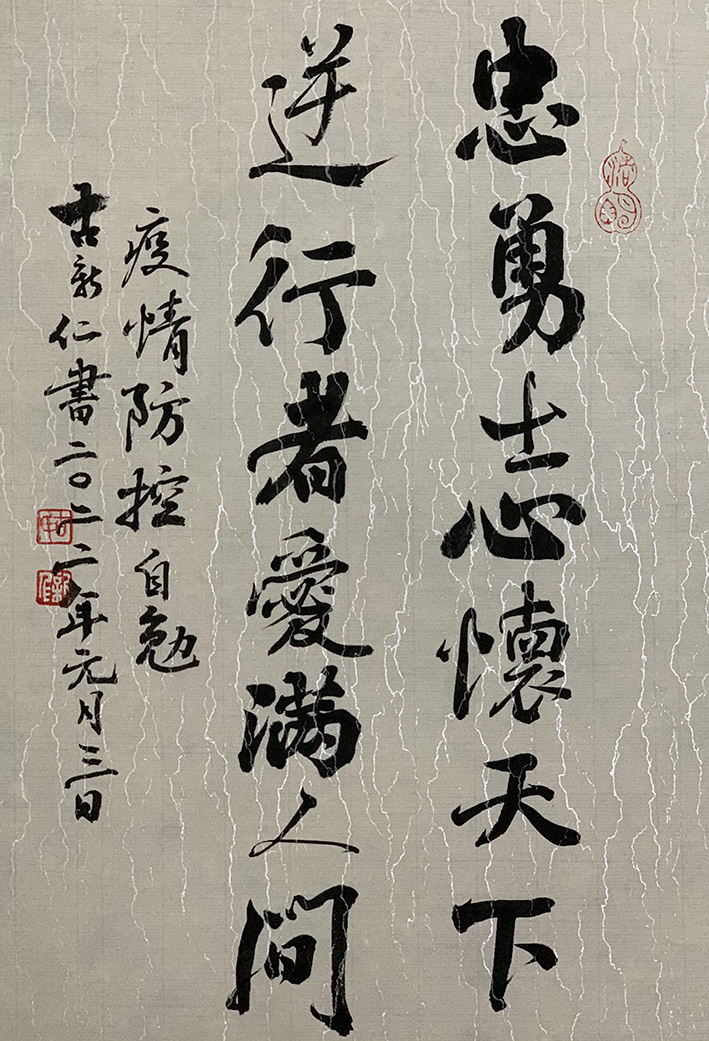 忠勇士心懷天下
逆行者愛滿人間
疫情防控自勉
古新仁書二〇二二年元月三日